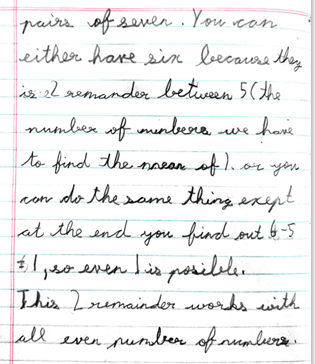 pairs of seven. You can
either have six because they
is 2 remander between 5(the
number of numbers we have
to find the mean of). or you
can do the same thing exept
at the end you find out 6-5
=1, so even 1 is posible.
This 2 remainder works with
all even number of numbers.